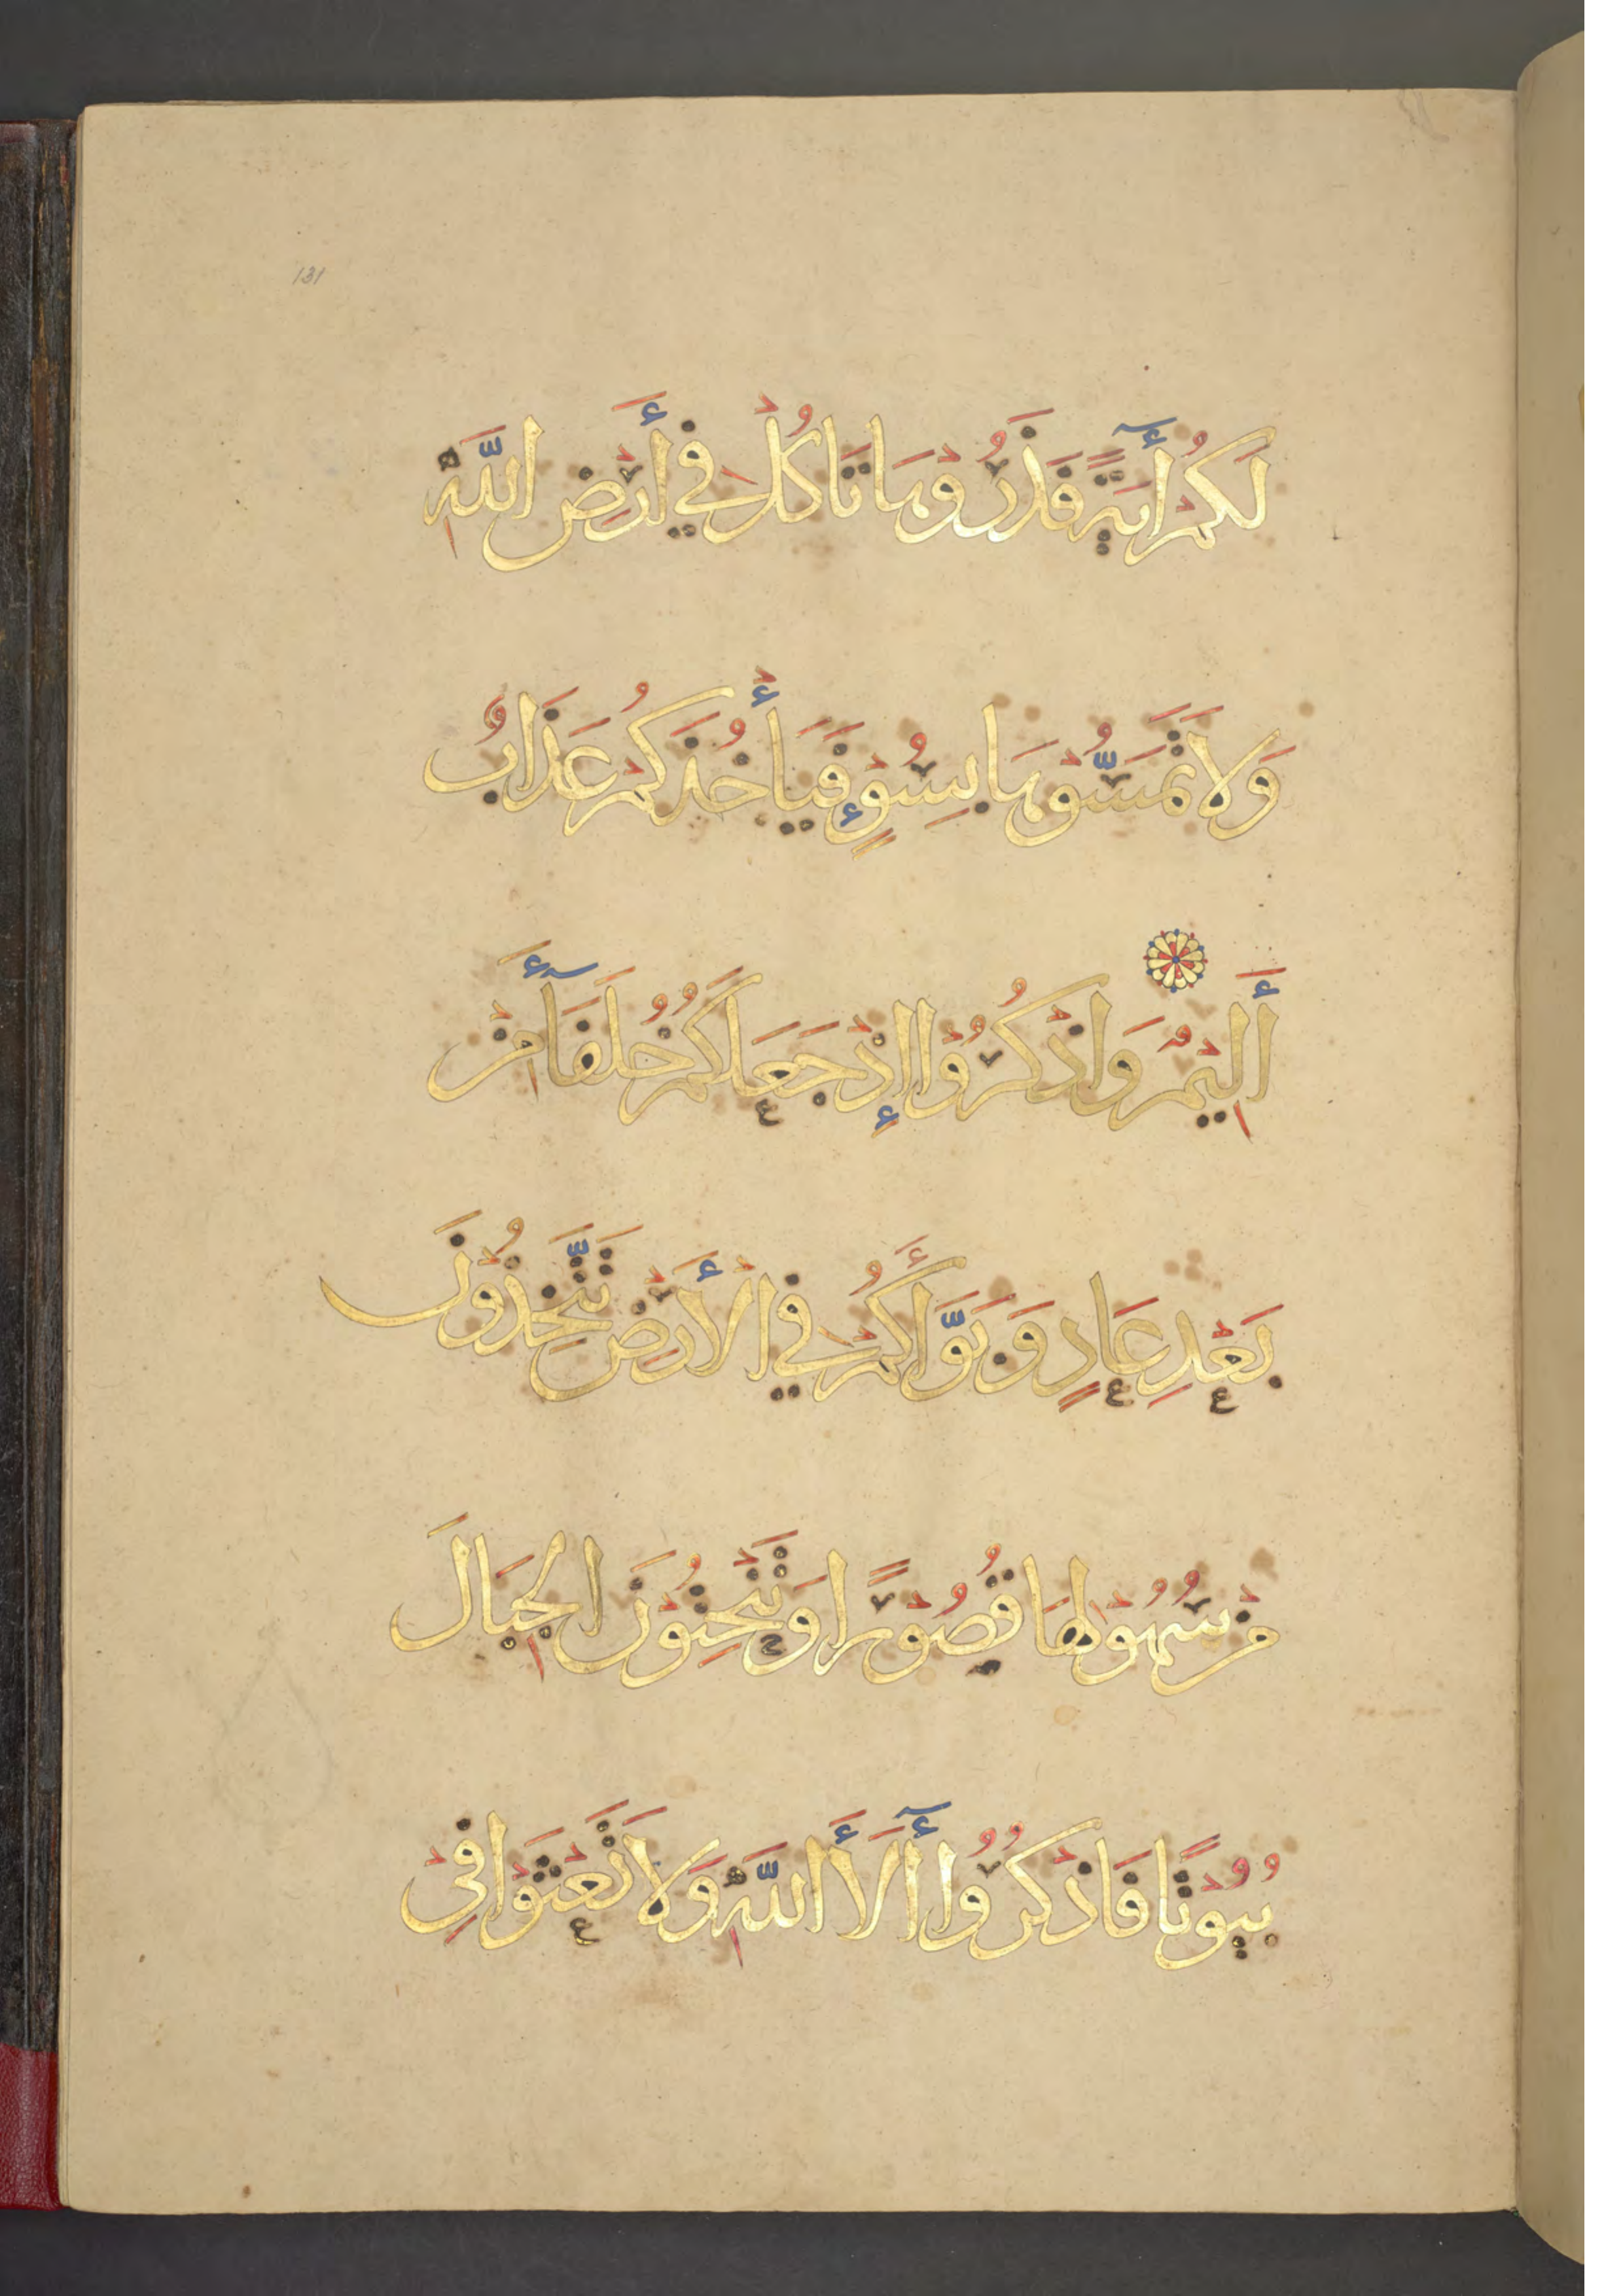 131
لَكُمْ أٓيَةً فَذَرُوهَا تَاكُلْ فِي أَرْضِ اللَّهِ
وَلَا تَمَسُّوهَا بِسُوٓءٍ فَيَأْخُذَكُمْ عَذَابٌ
أَلِيمٌ وَاذْكُرُوا إِذْ جَعَلَكُمْ خُلَفَآءَ مِنْ
بَعْدِ عَادٍ وَبَوَّأَكُمْ فِي الْأَرْضِ تَتَّخِذُونَ
مِنْ سُهُولِهَا قُصُورًا وَتَنْحِتُونَ الْجِبَالَ
بُيُوتًا فَاذْكُرُوا أٓلَآءَ اللَّهِ وَلَا تَعْثَوْا فِي